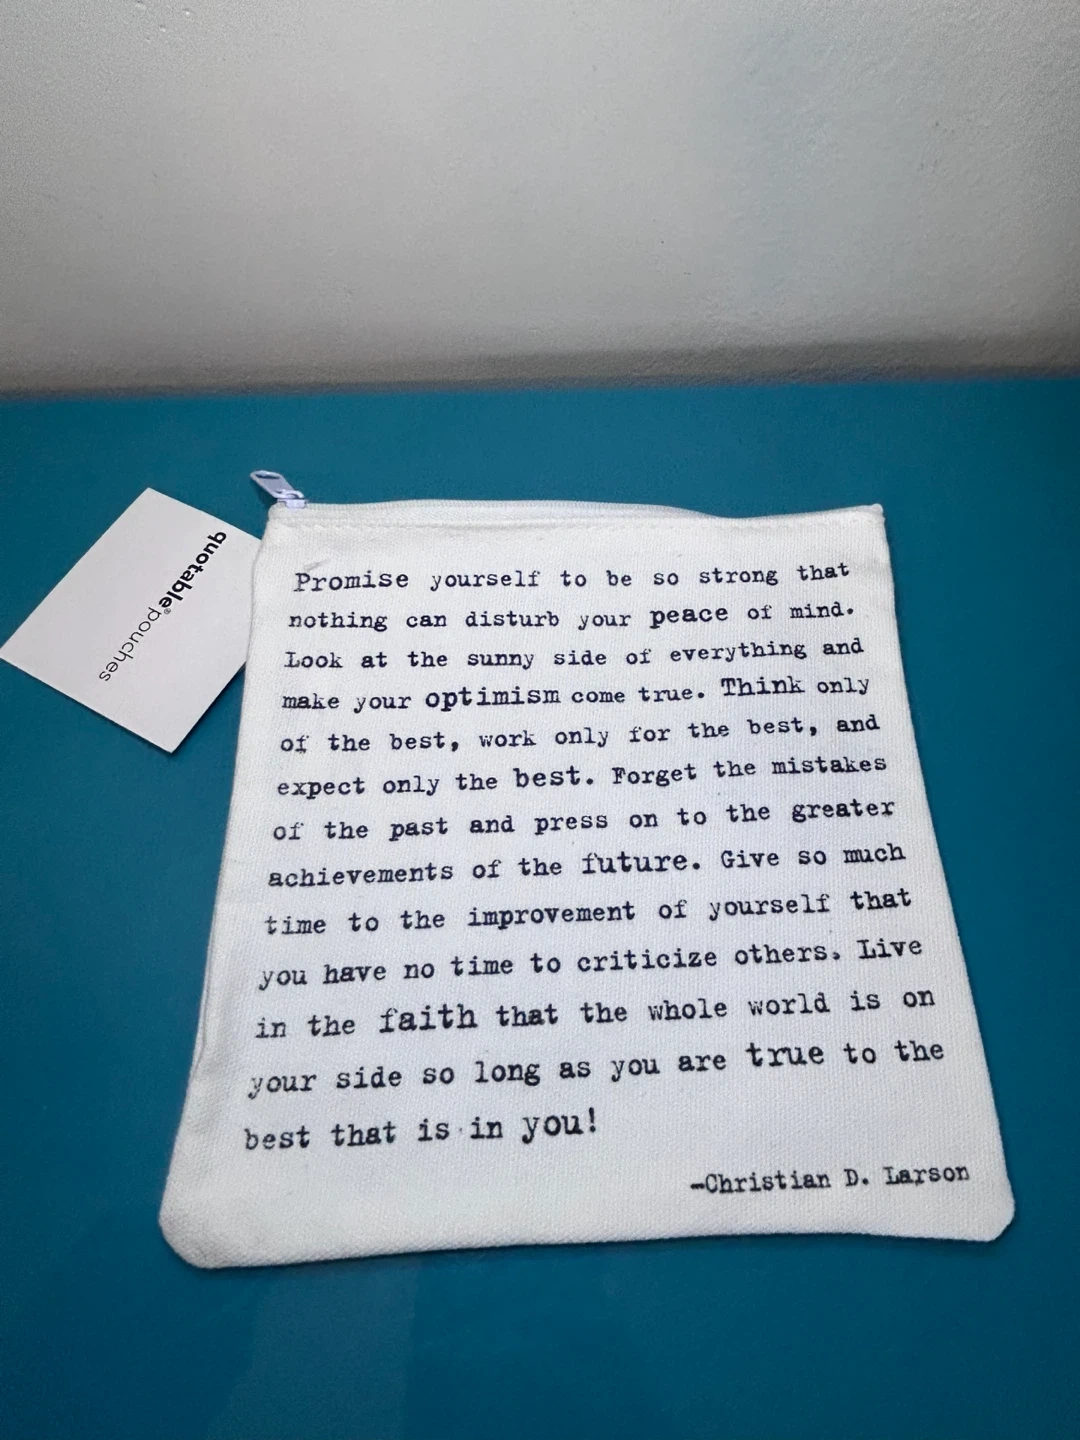 quotable® pouches
Promise yourself to be so strong that
nothing can disturb your peace of mind.
Look at the sunny side of everything and
make your optimism come true. Think only
of the best, work only for the best, and
expect only the best. Forget the mistakes
of the past and press on to the greater
achievements of the future. Give so much
time to the improvement of yourself that
you have no time to criticize others. Live
in the faith that the whole world is on
your side so long as you are true to the
best that is in you!
-Christian D. Larson